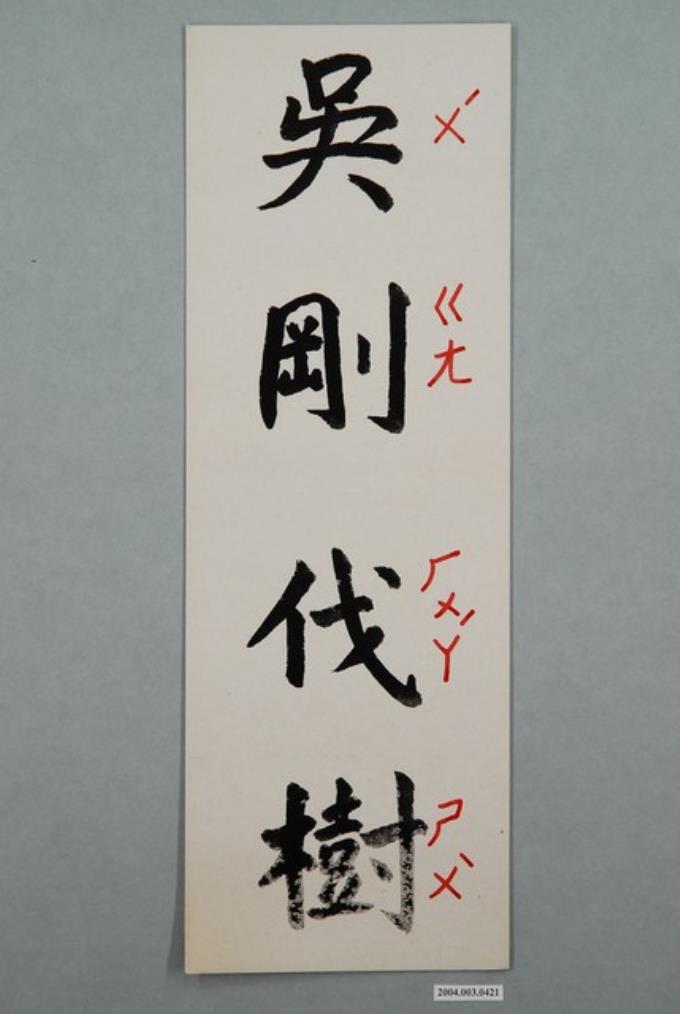 吳剛伐樹
ㄨˊ
ㄍㄤ
ㄏㄨㄚˊ
ㄕㄨˋ
2004.003.0421